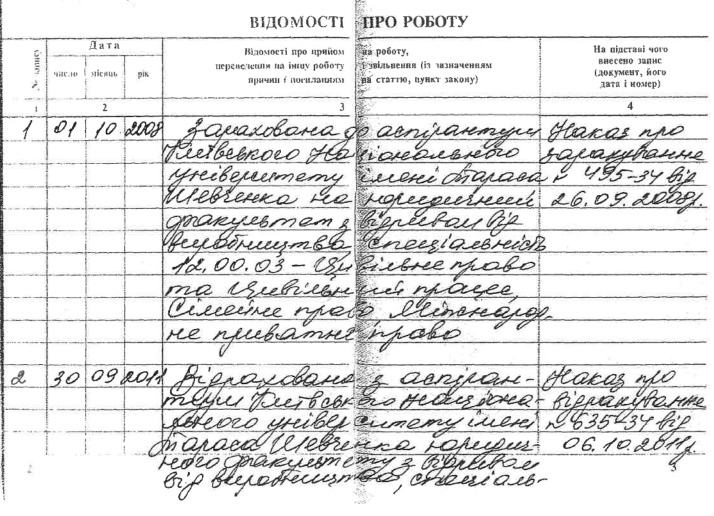 ВІДОМОСТІ ПРО РОБОТУ
№ запису
Дата
число місяць рік
Відомості про прийом на роботу,
переведення на іншу роботу і звільнення (із зазначенням
причин і посиланням на статтю, пункт закону)
На підставі чого
внесено запис
(документ, його
дата і номер)
1 2 3 4
1 01 10 2008 Зарахована до аспірантури Наказ про
Київського Національного зарахування
університету імені Тараса № 495-34 від
Шевченка на юридичний 26.09.2008р.
факультет з відривом від
виробництва, спеціальність
12.00.03 – Цивільне право
та Цивільний процес,
Сімейне право, Міжнарод-
не приватне право
2 30 09 2011 Відрахована з аспіран- Наказ про
тури Київського Націона- відрахування
льного університету імені № 635-34 від
Тараса Шевченка юридич- 06.10.2011р.
ного факультету з відривом
від виробництва, спеціаль-
3